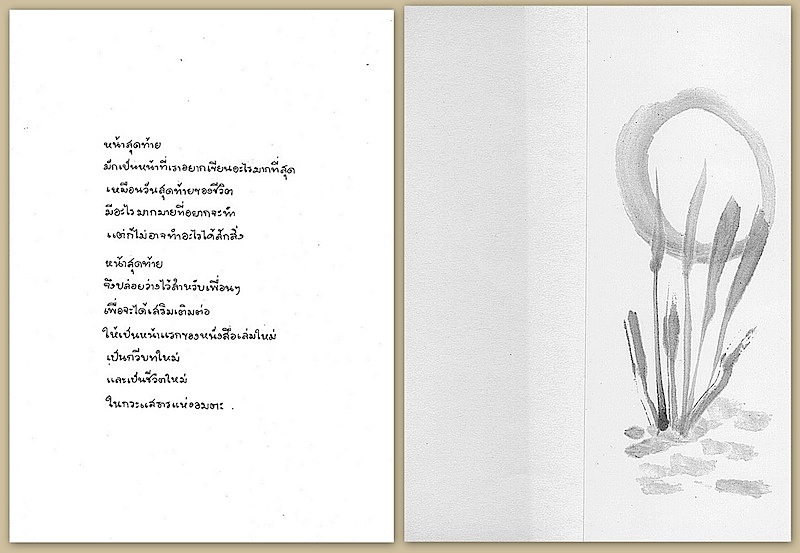 หน้าสุดท้าย
มักเป็นหน้าที่เราอยากเขียนอะไรมากที่สุด
เหมือนวันสุดท้ายของชีวิต
มีอะไรมากมายที่อยากจะทำ
แต่ก็ไม่อาจทำอะไรได้สักสิ่ง
หน้าสุดท้าย
จึงปล่อยว่างไว้สำหรับเพื่อนๆ
เพื่อจะได้เสริมเติมต่อ
ให้เป็นหน้าแรกของหนังสือเล่มใหม่
เป็นกวีบทใหม่
และเป็นชีวิตใหม่
ในกระแสธารแห่งอมตะ .